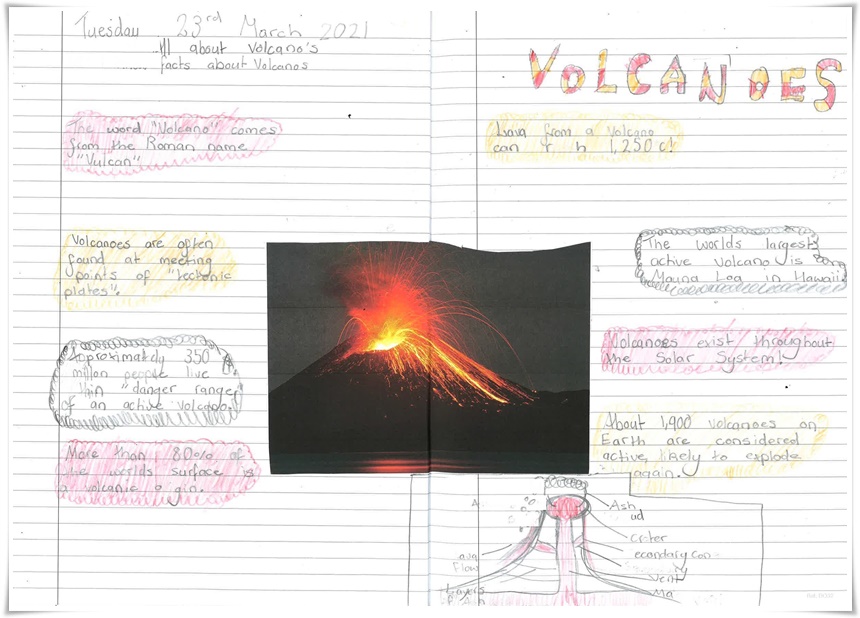 Tuesday 23rd March 2021
about Volcano's
facts about Volcanos
VOLCANOES
The word "Volcano" comes
from the Roman name
"Vulcan"
Lava from a Volcano
can 1,250c!
Volcanoes are often
found at meeting
points of "tectonic
plates".
The worlds largest
active Volcano is
Mauna Loa in Hawaii.
Approximately 350
people live
"danger range
of an active volcano.
Volcanoes exist throughout
the Solar System!
More than 80% of
the worlds surface is
volcanic
About 1,900 volcanoes on
Earth are considered
active, likely to explode
again.
Ash
Crater
Flow
Vent
Layers